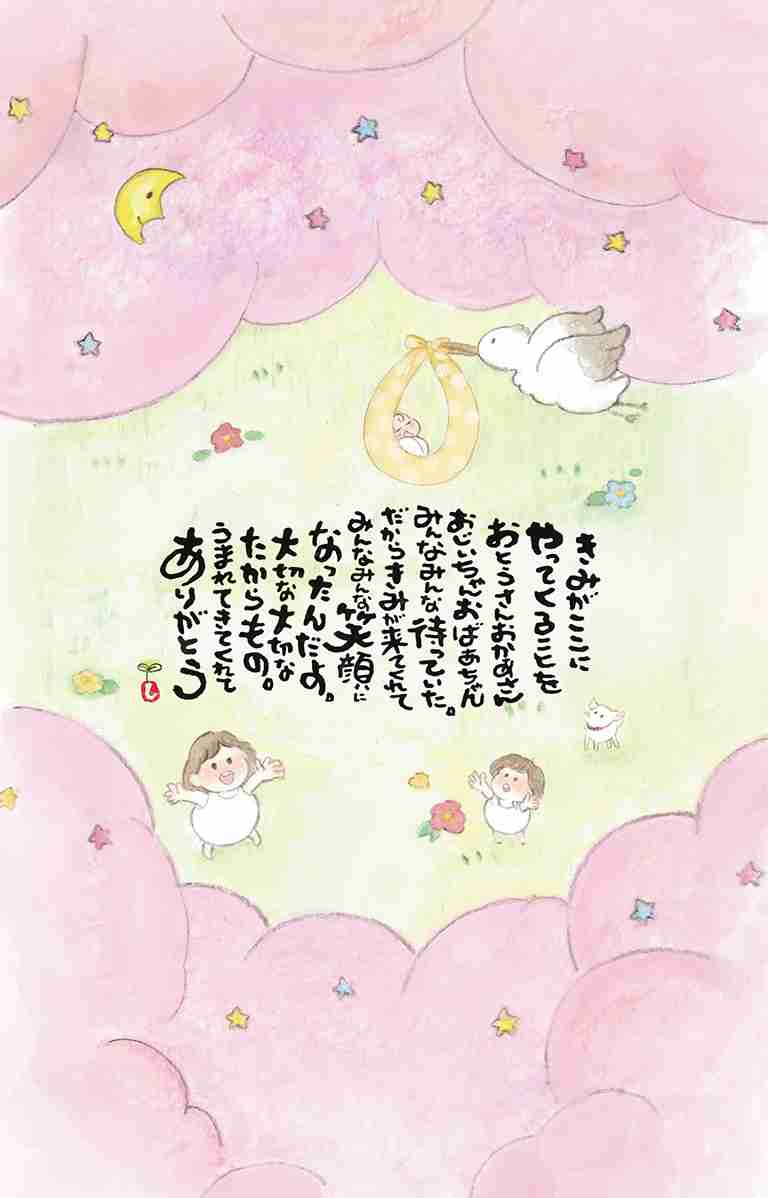 きみがここに
やってくることを
おとうさんおかあさん
おじいちゃんおばあちゃん
みんなみんな待っていた。
だからきみが来てくれて
みんなみんな笑顔に
なったんだよ。
大切な大切な
たからもの。
うまれてきてくれて
ありがとう
し